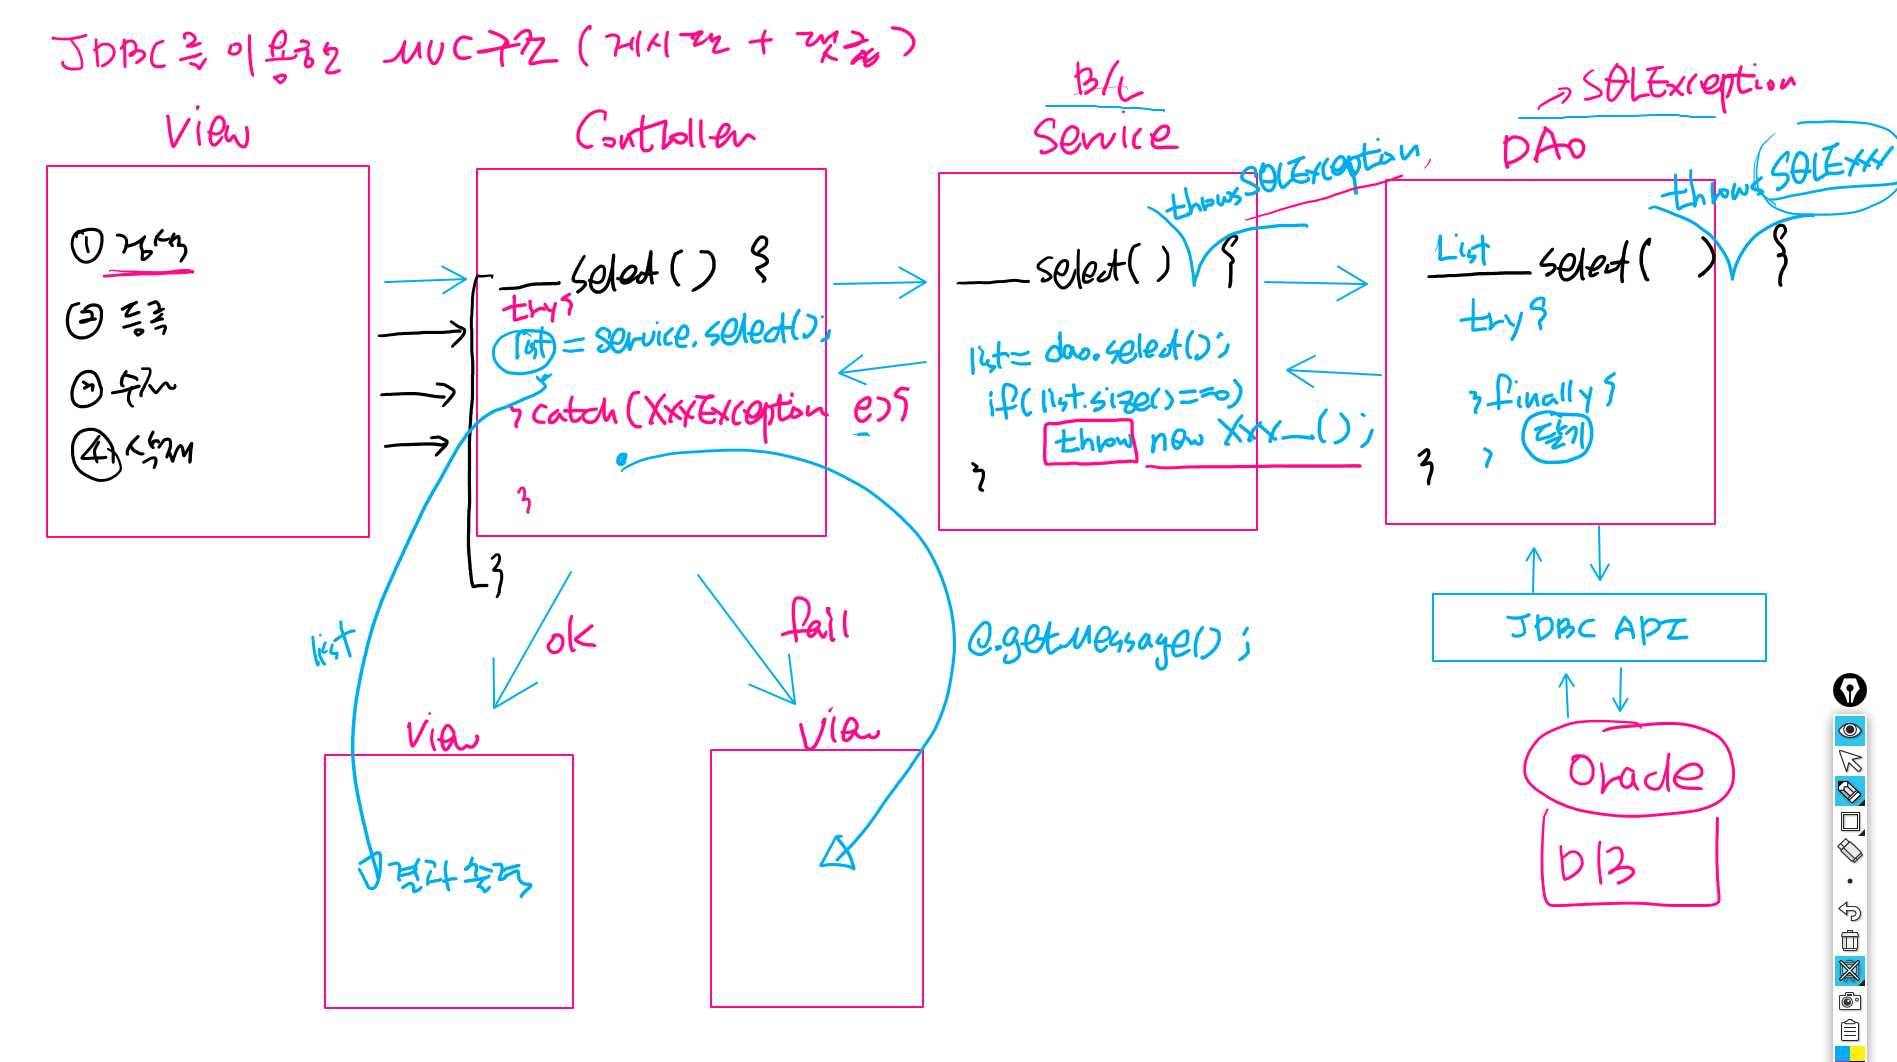 JDBC를 이용한 MVC구조 (게시판 + 댓글)
View
① 검색
② 등록
③ 수정
④ 삭제
Controller
select() {
try{
list = service.select();
} catch(XxxException e){
}
}
B/L
Service
throws SQLException
select() {
list = dao.select();
if(list.size()==0)
throw new XXX_();
}
→ SQLException
DAO
throws SQLExxx
List select( ) {
try{
}finally{
닫기
}
}
ok
fail
list
e.getMessage();
JDBC API
View
결과출력
View
Oracle
DB